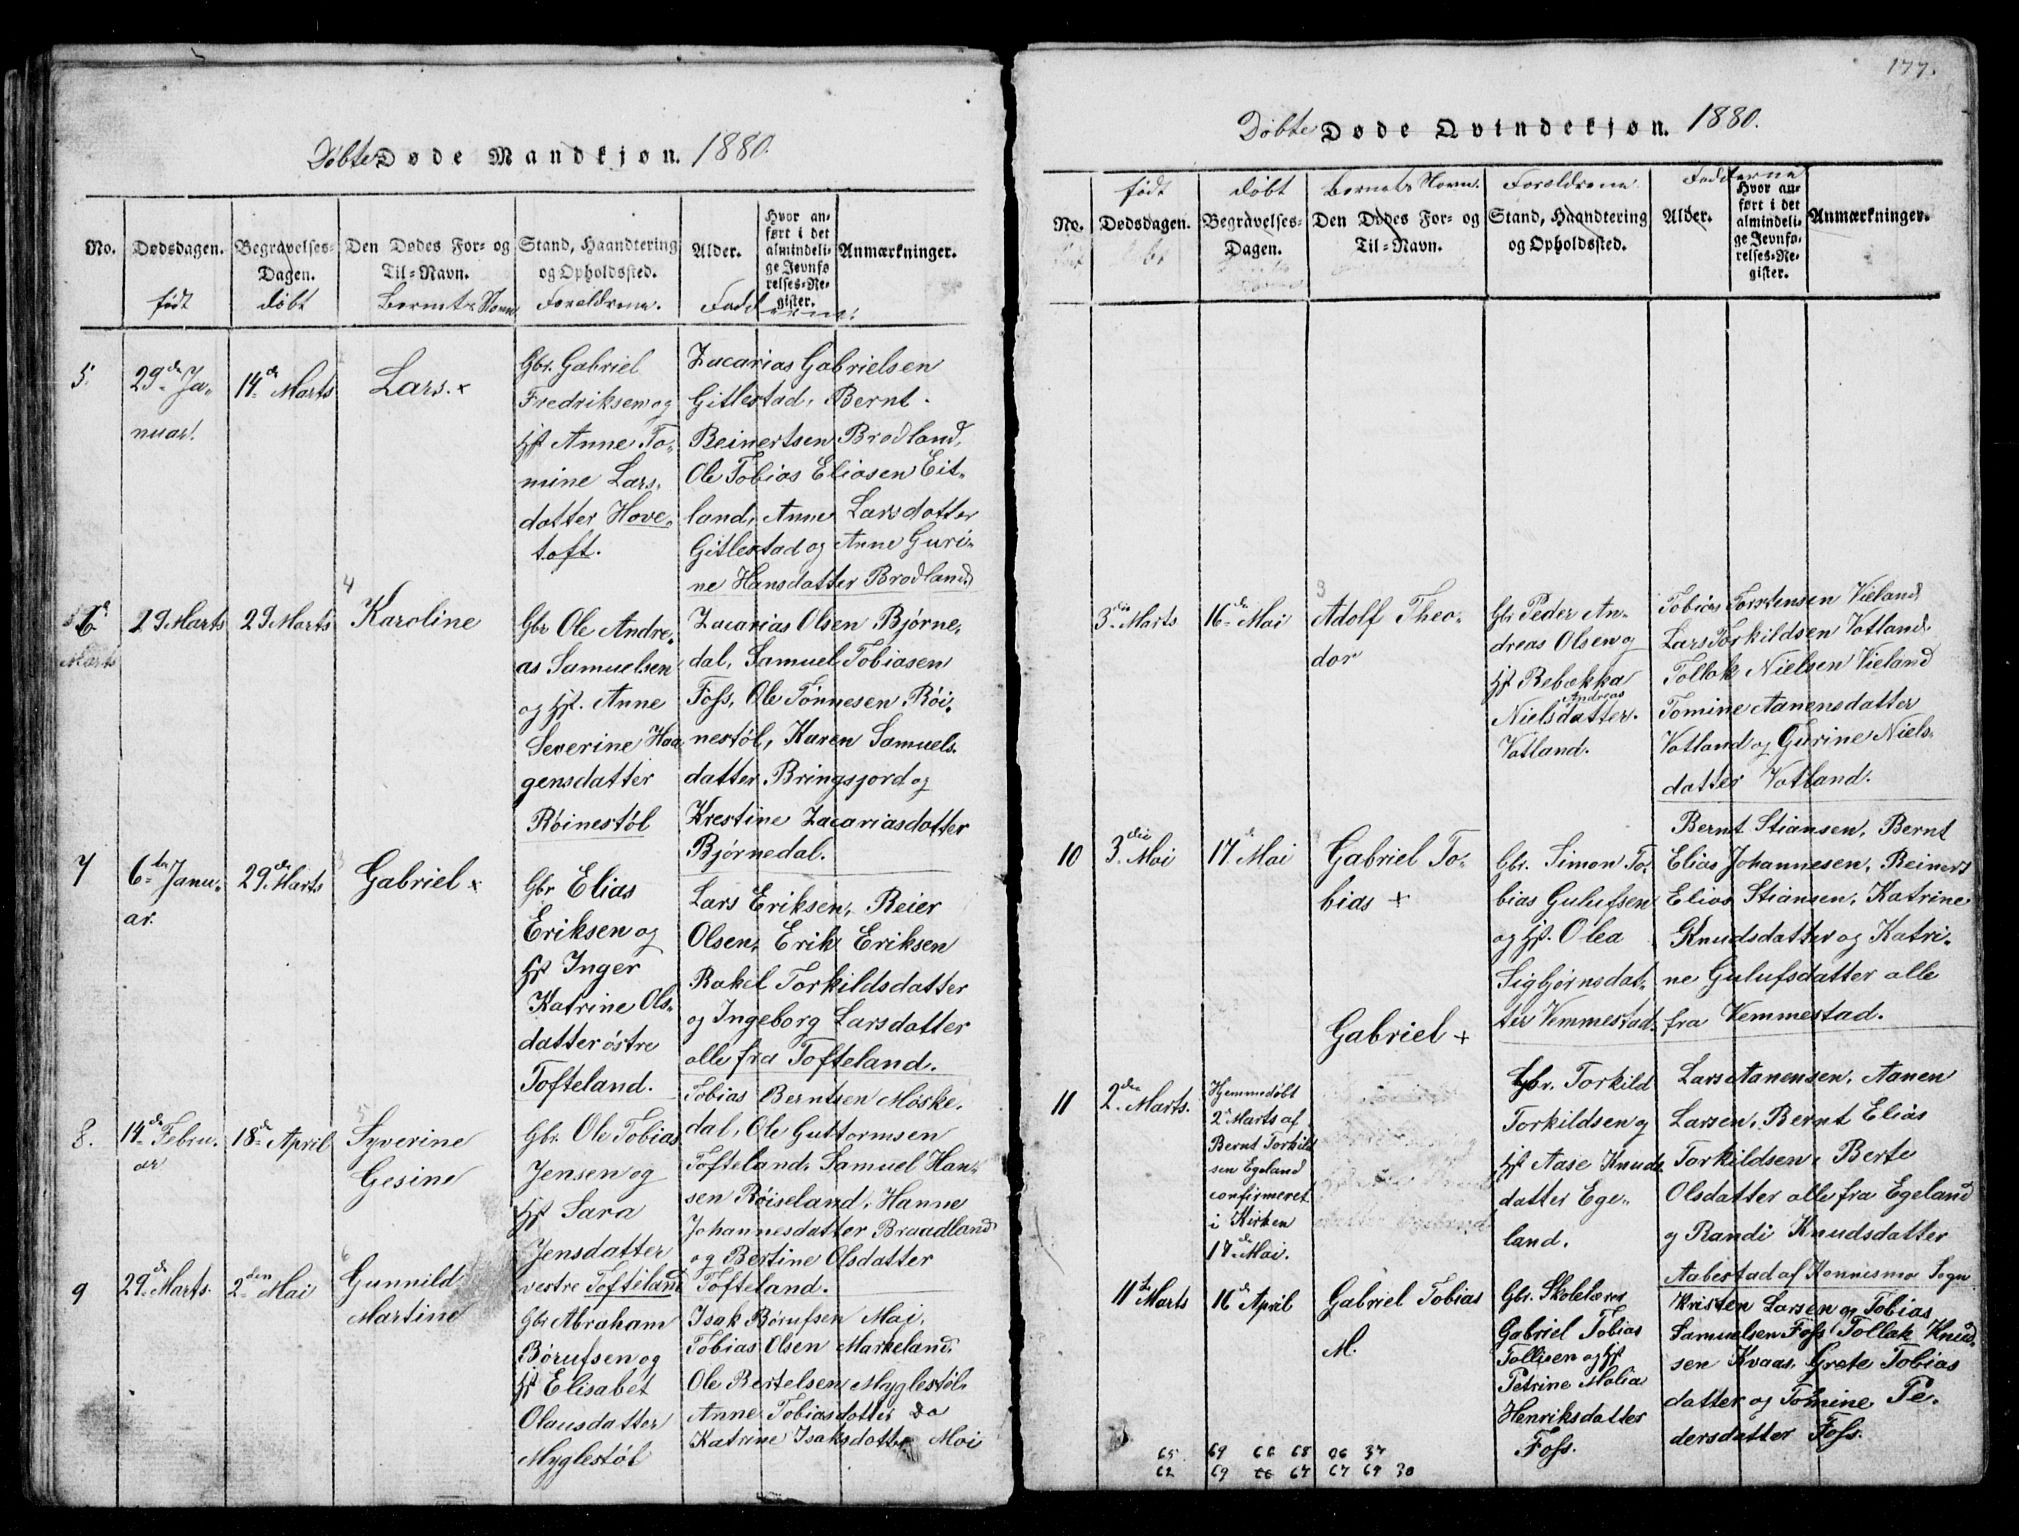 Døbte Døde Mandkjøn. 1880.
No.
Dødsdagen.
født
Begravelses-
Dagen.
døbt
Den Dødes For- og
Til-Navn.
Barnets Navn.
Stand, Haandtering
og Opholdssted.
Forældrene.
Alder.
Hvor an-
ført i det
almindeli-
ge Jevnfø
relses-Re-
gister.
Fadderne.
Anmærkninger.
5.
29de Ja-
nuar.
14de Marts
Lars. +
Gbr. Gabriel
Fredriksen og
Hst Anne To-
mine Lars-
datter Hove-
toft.
Zacarias Gabrielsen
Gitlestad, Bernt
Beinertsen Brodland,
Ole Tobias Eliasen Eit-
land, Anne Larsdatter
Gitlestad og Anne Guri-
ne Hansdatter Brodland
6.
Marts
29 Marts
29 Marts
4
Karoline
Gbr Ole Andre-
as Samuelsen
og Hst. Anne
Severine Haa-
gensdatter
Røinestøl
Zacarias Olsen Bjørne-
dal, Samuel Tobiasen
Foss, Ole Tønnesen Røi-
nestøl, Karen Samuels-
datter Bringsjord og
Krestine Zacariasdatter
Bjørnedal.
7
6te Janu-
ar.
29de Marts
Gabriel +
Gbr Elias
Eriksen og
Hst Inger
Katrine Ols-
datter østre
Tofteland.
Lars Eriksen, Reier
Olsen, Erik Eriksen
Rakel Torkildsdatter
og Ingeborg Larsdatter
alle fra Tofteland.
8.
14de Febru-
ar
18de April
5
Syverine
Gesine
Gbr. Ole Tobias
Jensen og
Hst Sara
Jensdatter
vestre Tofteland
Tobias Berntsen Møske-
dal, Ole Guttormsen
Tofteland, Samuel Han-
sen Røiseland, Hanne
Johannesdatter Braadland
og Bertine Olsdatter
Tofteland.
9
29de Marts.
2den Mai
6
Gunnild
Martine
Gbr Abraham
Børufsen og
Hst Elisabet
Olausdatter
Myglestøl
Isak Børufsen Moi,
Tobias Olsen Markeland,
Ole Bertelsen Myglestøl
Anne Tobiasdatter do
Katrine Isaksdatter Moi
177.
Døbte Døde Qvindekjøn. 1880.
No.
født
Dødsdagen.
døbt
Begravelses-
Dagen.
Barnets Navn.
Den Dødes For- og
Til-Navn.
Forældrene.
Stand, Haandtering
og Opholdssted.
Fadderne
Alder.
Hvor an-
ført i det
almindeli-
ge Jevnfø-
relses-Re-
gister.
Anmærkninger.
3die Marts
16de Mai
3
Adolf Theo-
dor
Gbr Peder An-
dreas Olsen og
Hst Rebekka
Andreas
Nielsdatter.
Vatland.
Tobias Torstensen Vieland
Lars Torkildsen Vatland.
Tollak Nielsen Vieland
Tomine Aanensdatter
Vatland og Gurine Niels-
datter Vatland.
10
3die Mai
17de Mai
Gabriel To-
bias +
Gbr. Simon To-
bias Gulufsen
og Hst. Olea
Sigbjørnsdat-
ter Vemmestad
Bernt Stiansen, Bernt
Elias Johannesen, Reinert
Elias Stiansen, Katrine
Knudsdatter og Katri-
ne Gulufsdatter alle
fra Vemmestad.
11
2den Marts.
Hjemmedøbt
2den Marts af
Bernt Torkild-
sen Egeland
confirmeret
i Kirken
17de Mai.
Gabriel +
Gbr. Torkild
Torkildsen og
Hst Aase Knuds-
datter Ege-
land.
Lars Aanensen, Aanen
Larsen, Bernt Elias
Torkildsen, Berte
Olsdatter alle fra Egeland
og Randi Knudsdatter
Aabestad af Konnismo Sogn
11te Marts
16de April
Gabriel Tobias
M.
Gbr. Skolelærer
Gabriel Tobias
Tollisen og Hst
Petrine Malia
Henriksdatter
Foss.
Kristen Larsen og Tobias
Samuelsen Foss Tollak Knud-
sen Kvaas, Grete Tobias
datter og Tomine Pe-
dersdatter Foss.
65 69 66 68 06 37
62 69 66 67 67 69 30